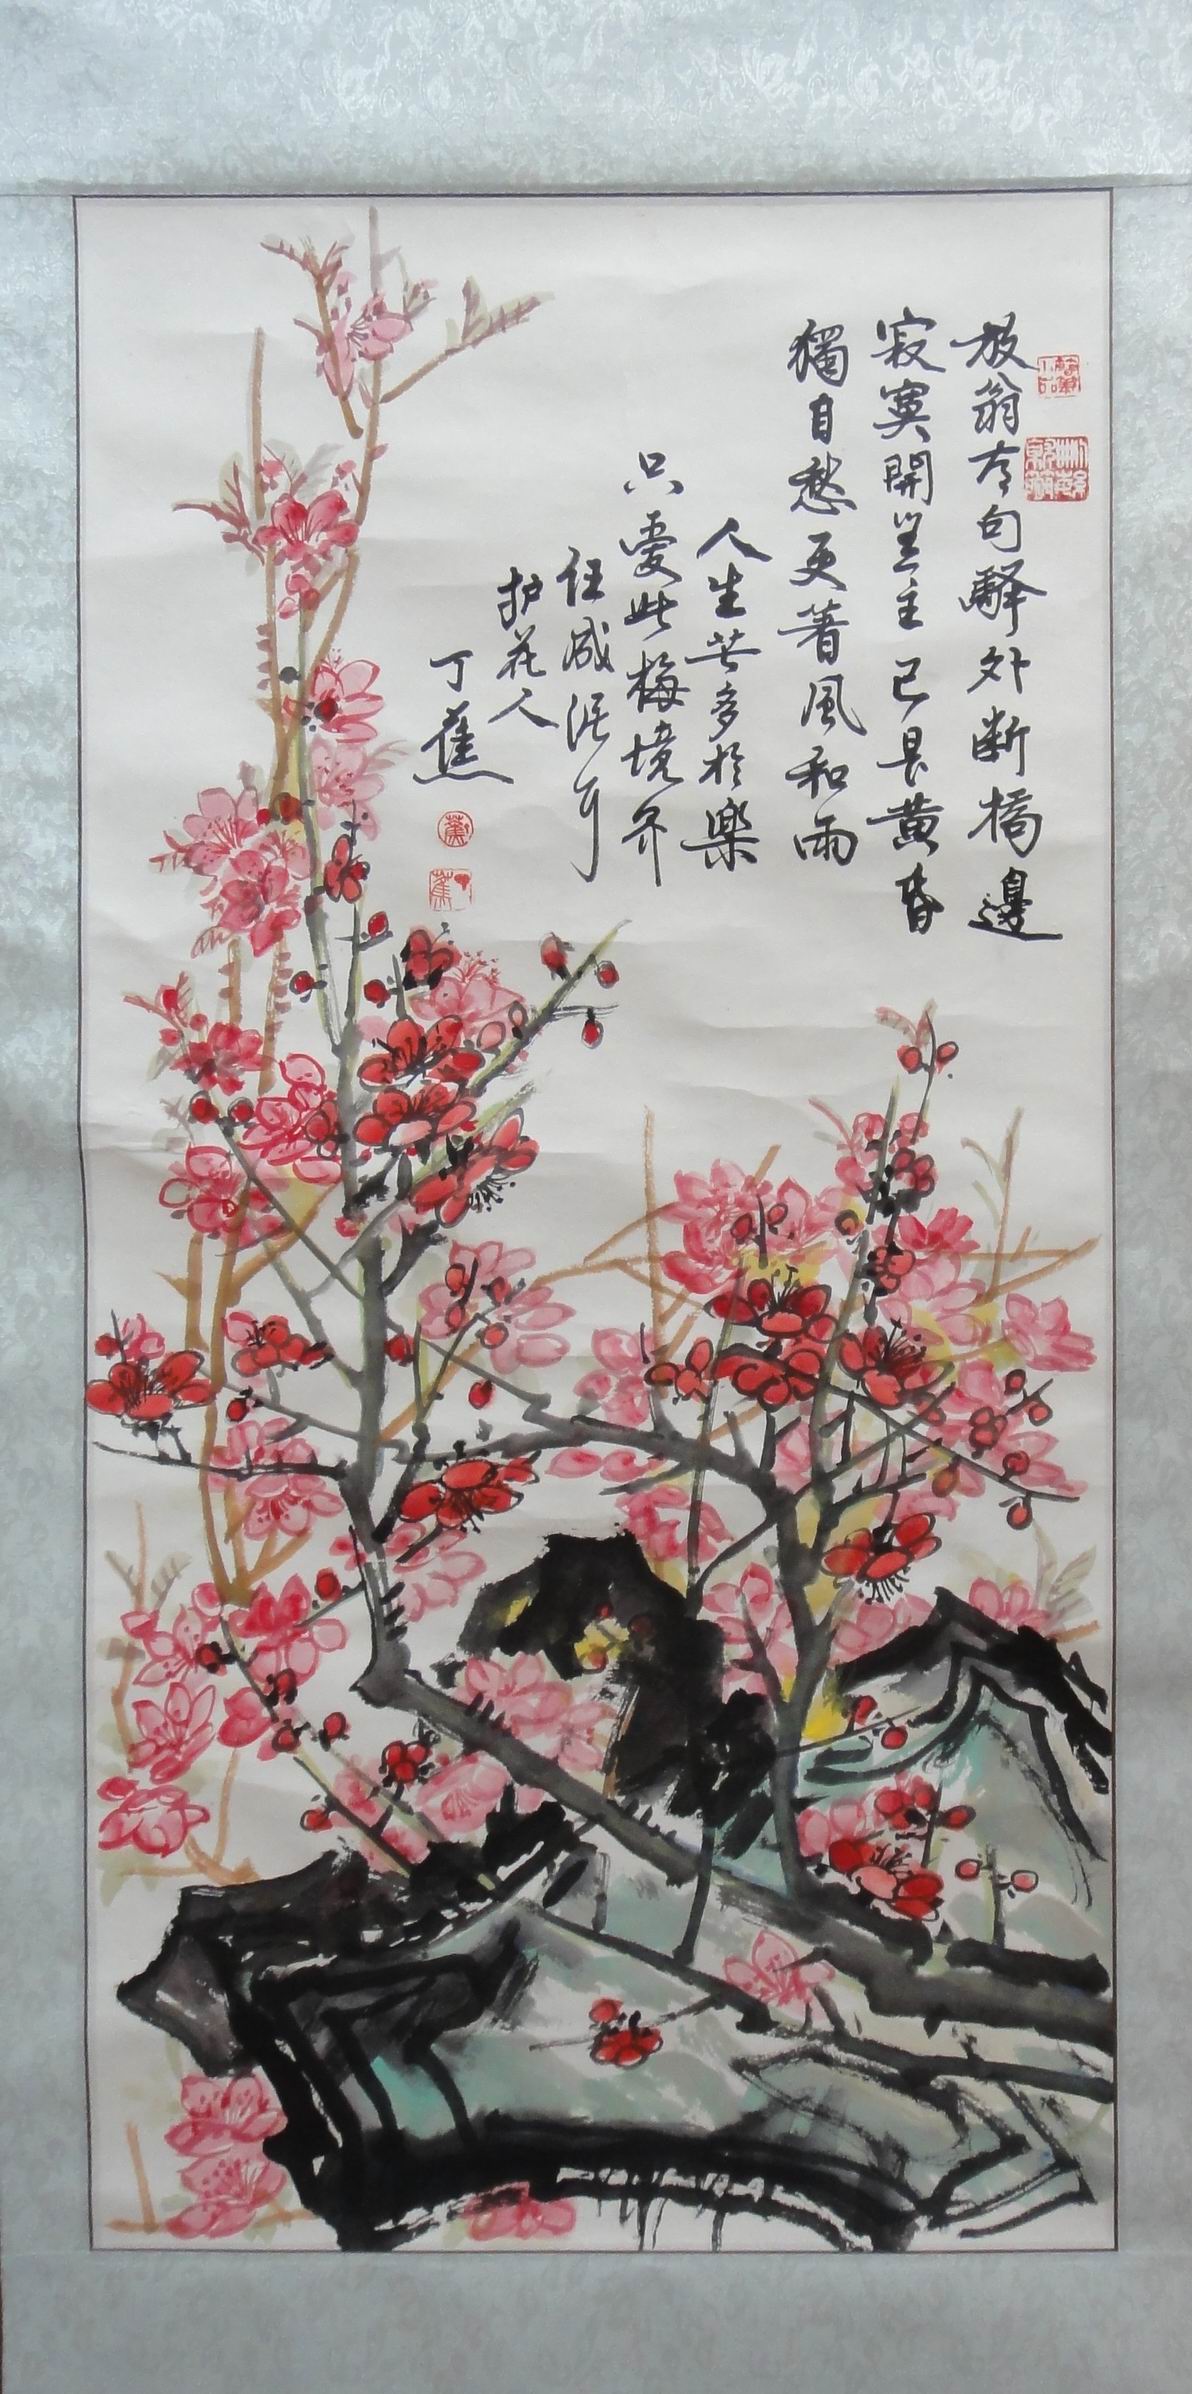 放翁有句驿外断橋邊
寂寞開無主已是黄昏
獨自愁更著風和雨
人生苦多於樂
只愛此梅境界
任成泥耳
护花人
丁蕉
蕉
丁蕉